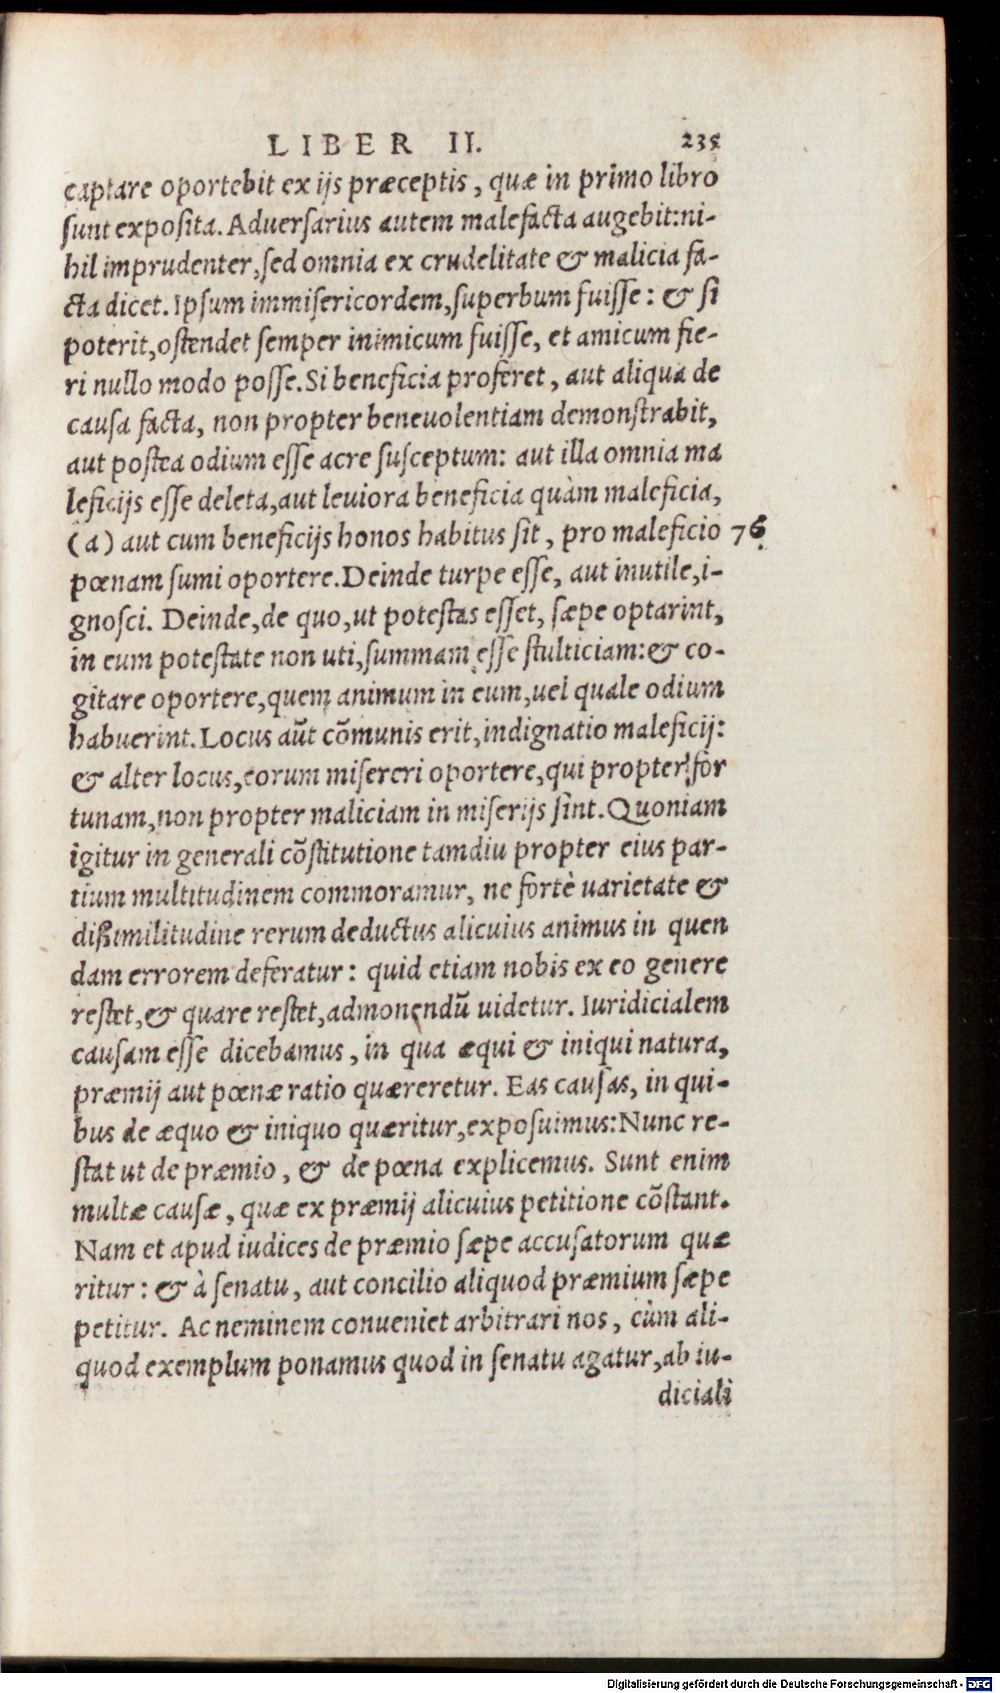 LIBER II. 235
captare oportebit ex ijs præceptis, quæ in primo libro
sunt exposita. Aduersarius autem malefacta augebit: ni-
hil imprudenter, sed omnia ex crudelitate & malicia fa-
cta dicet. Ipsum immisericordem, superbum fuisse: & si
poterit, ostendet semper inimicum fuisse, et amicum fie-
ri nullo modo posse. Si beneficia proferet, aut aliqua de
causa facta, non propter beneuolentiam demonstrabit,
aut postea odium esse acre susceptum: aut illa omnia ma
leficijs esse deleta, aut leuiora beneficia quàm maleficia,
(a) aut cum beneficijs honos habitus sit, pro maleficio 76
pœnam sumi oportere. Deinde turpe esse, aut inutile, i-
gnosci. Deinde, de quo, ut potestas esset, sæpe optarint,
in eum potestate non uti, summam esse stulticiam: & co-
gitare oportere, quem animum in eum, uel quale odium
habuerint. Locus aūt cōmunis erit, indignatio maleficij:
& alter locus, eorum misereri oportere, qui propter for
tunam, non propter maliciam in miserijs sint. Quoniam
igitur in generali cōstitutione tamdiu propter eius par-
tium multitudinem commoramur, ne fortè uarietate &
dißimilitudine rerum deductus alicuius animus in quen
dam errorem deferatur: quid etiam nobis ex eo genere
restet, & quare restet, admonendū uidetur. Iuridicialem
causam esse dicebamus, in qua æqui & iniqui natura,
præmij aut pœnæ ratio quæreretur. Eas causas, in qui-
bus de æquo & iniquo quæritur, exposuimus: Nunc re-
stat ut de præmio, & de pœna explicemus. Sunt enim
multæ causæ, quæ ex præmij alicuius petitione cōstant.
Nam et apud iudices de præmio sæpe accusatorum quæ
ritur: & à senatu, aut concilio aliquod præmium sæpe
petitur. Ac neminem conueniet arbitrari nos, cùm ali-
quod exemplum ponamus quod in senatu agatur, ab iu-
diciali
Digitalisierung gefördert durch die Deutsche Forschungsgemeinschaft - DFG